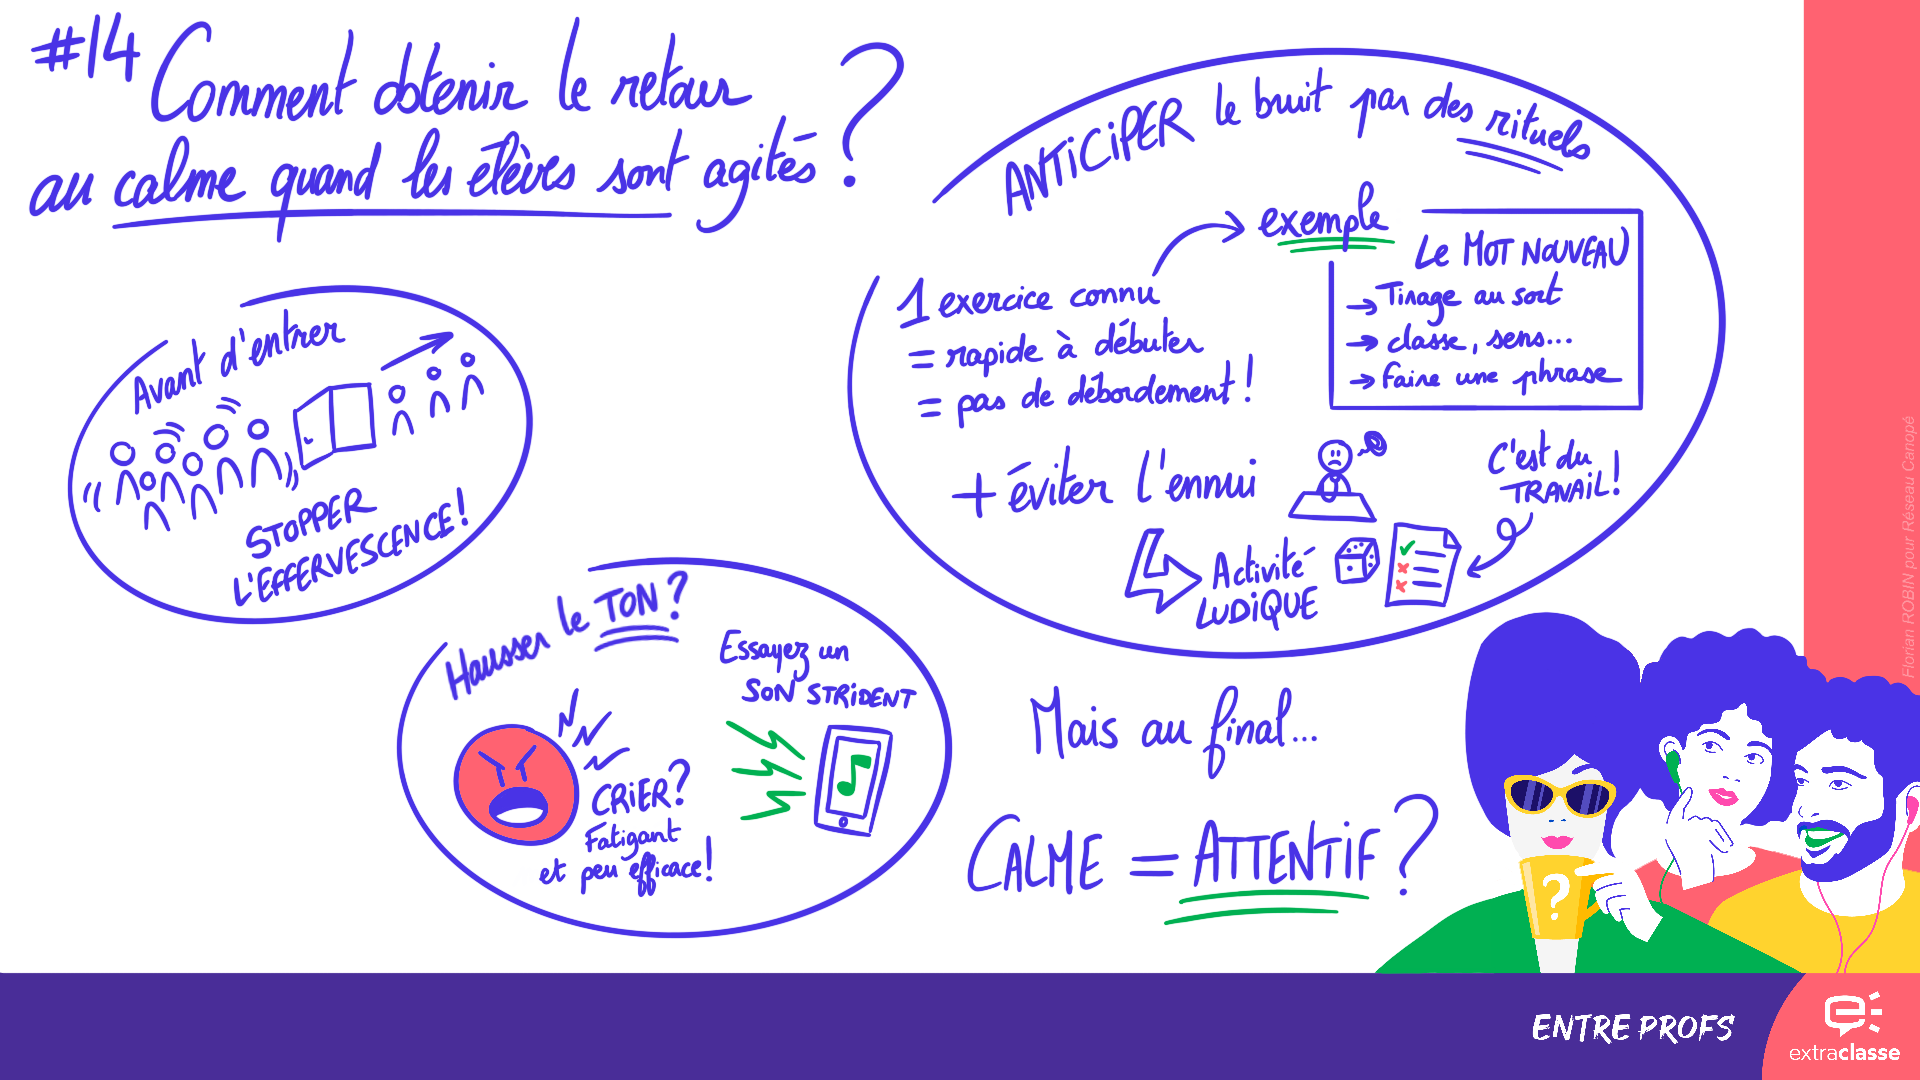 #14 Comment obtenir le retour
au calme quand les élèves sont agités ?
Avant d'entrer
STOPPER
L'EFFERVESCENCE !
Hausser le TON ?
CRIER ?
Fatigant
et peu efficace !
Essayez un
SON STRIDENT
ANTICIPER le bruit par des rituels
1 exercice connu
= rapide à débuter
= pas de débordement !
exemple
Le MOT NOUVEAU
→ Tirage au sort
→ classe, sens...
→ Faire une phrase
+ éviter l'ennui
Activité
LUDIQUE
C'est du
TRAVAIL !
Mais au final...
CALME = ATTENTIF ?
?
Florian ROBIN pour Réseau Canopé
ENTRE PROFS
extraclasse